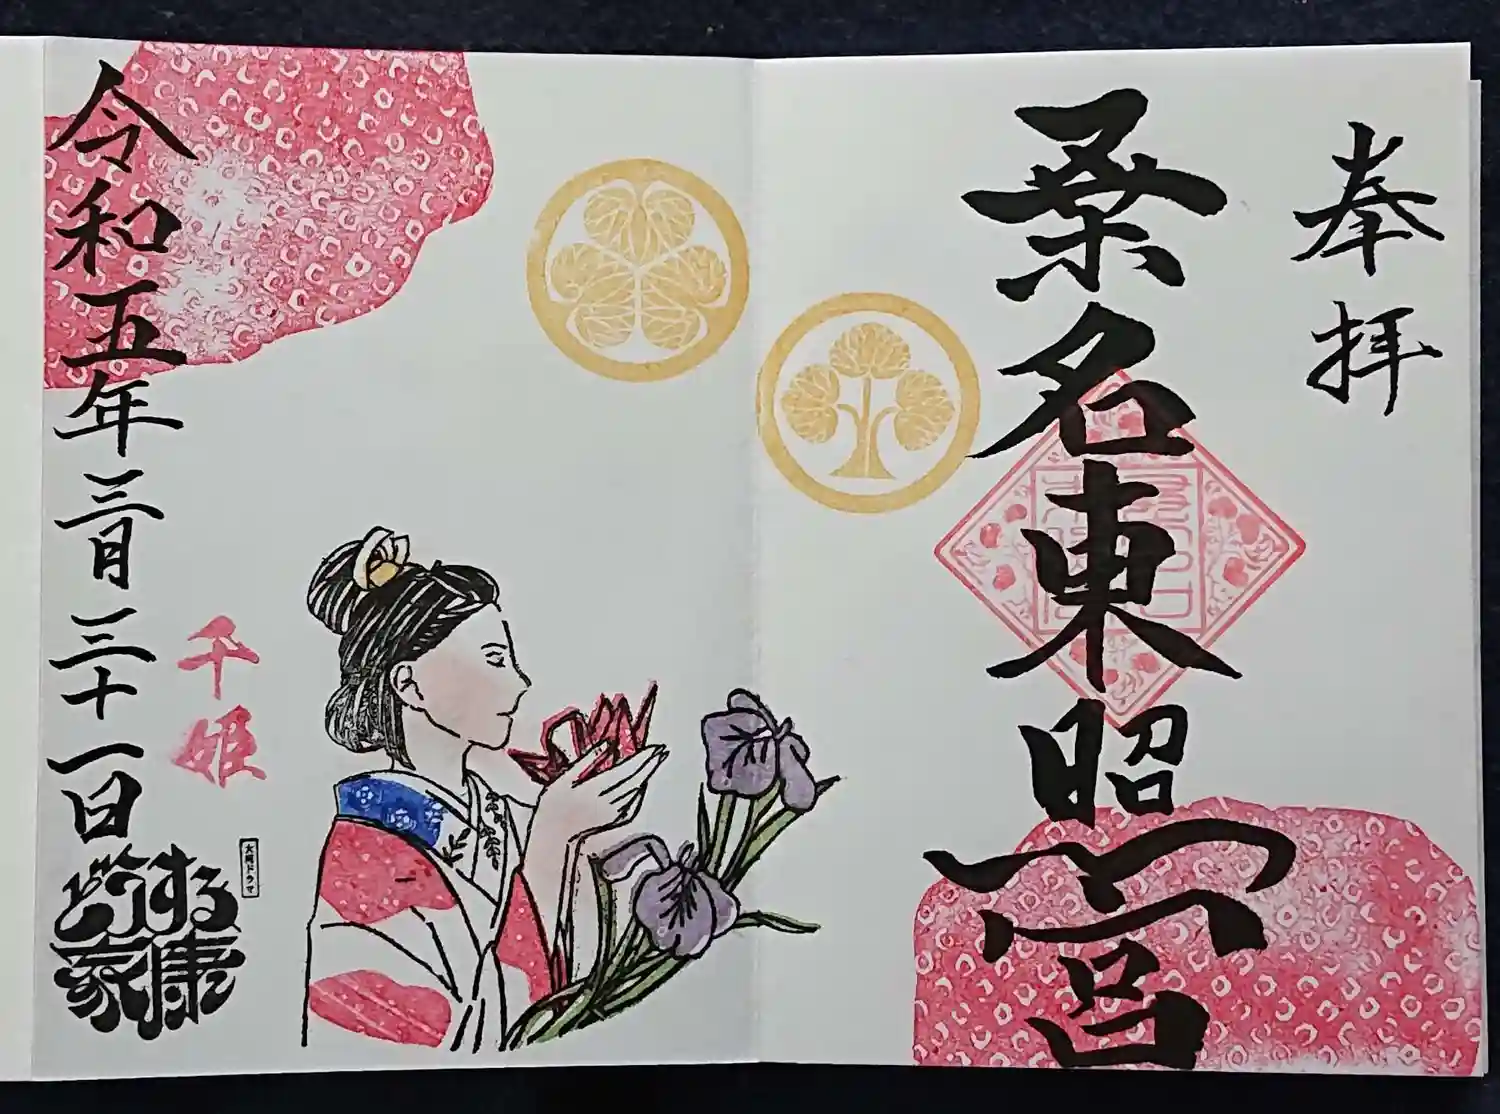 奉拝
桑名東照宮
令和五年三月三十一日
千姫
大河ドラマ
どうする家康